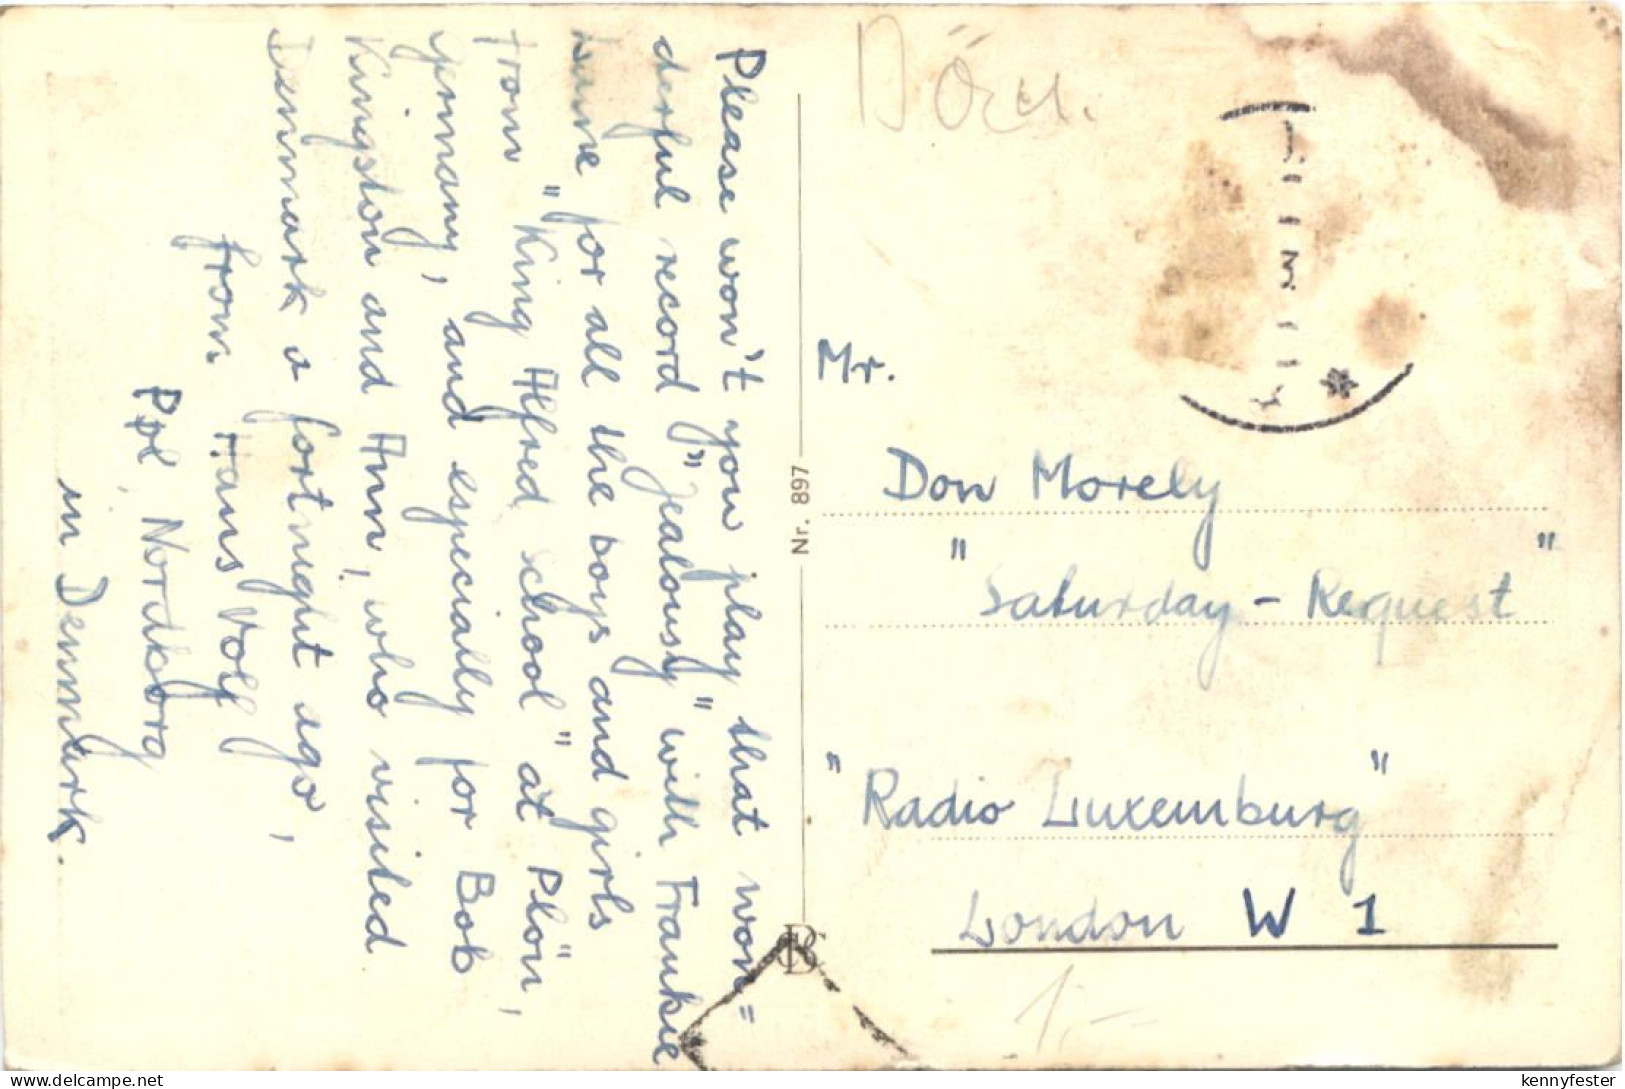 Please won't you play that won=
derful record "Jealousy" with Frankie
Laine for all the boys and girls
from "King Alfred school" at Plön,
germany, and especially for Bob
Kingston and Ann, who visited
Denmark a fortnight ago,
from Hans Volf
Pøl, Nordborg
in Denmark.
Nr. 897
Mr.
Don Morely
"Saturday - Request"
"Radio Luxemburg"
London W 1
1,-
delcampe.net
kennyfester